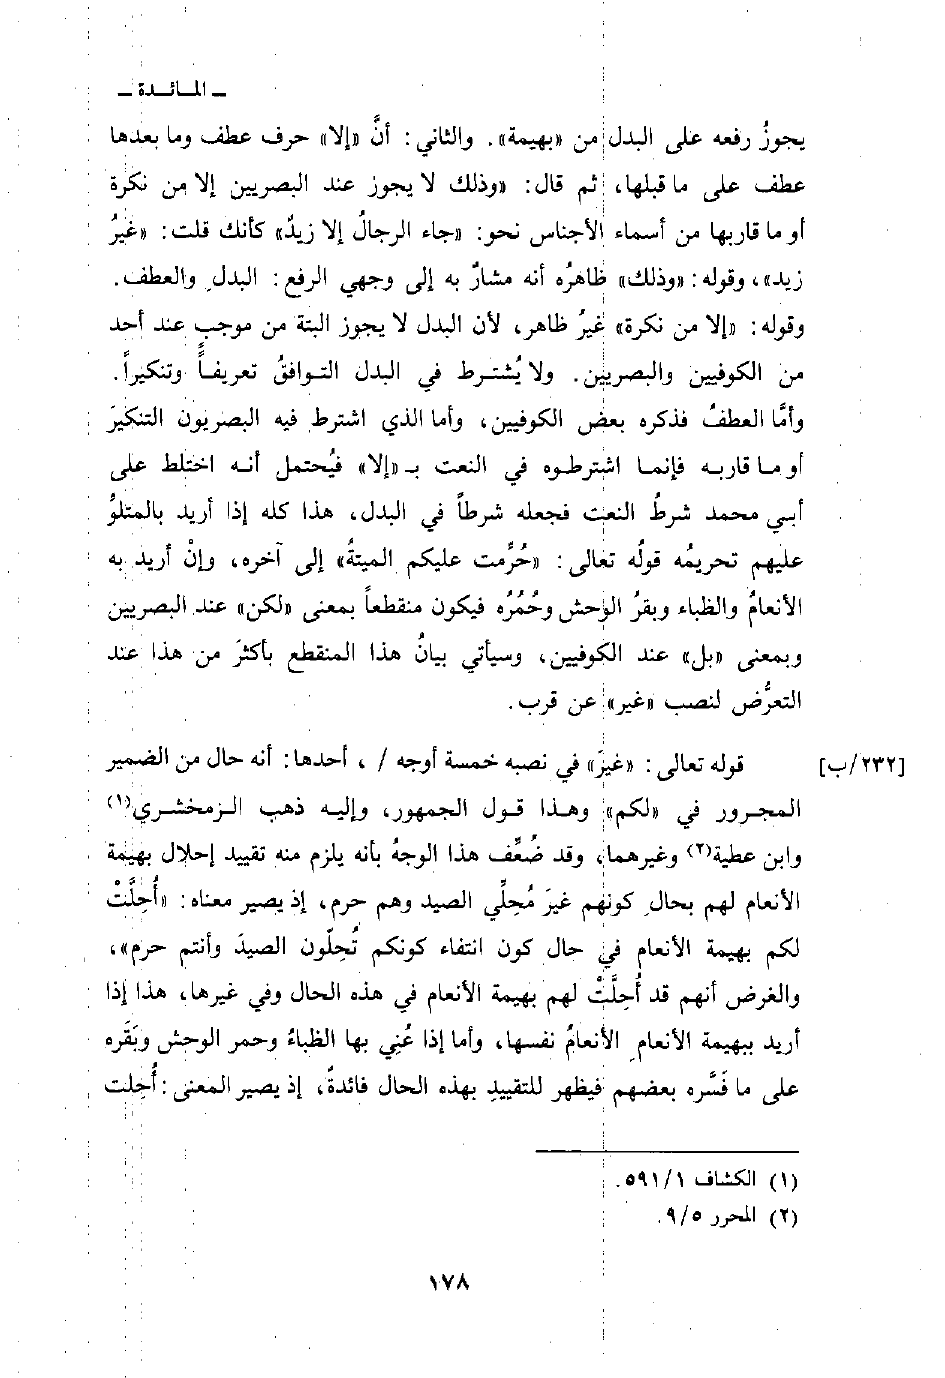 ـ المائدة ـ
يجوزُ رفعه على البدل من «بهيمة». والثاني: أنَّ «إلا» حرف عطف وما بعدها
عطف على ما قبلها، ثم قال: «وذلك لا يجوز عند البصريين إلا من نكرة
أو ما قاربها من أسماء الأجناس نحو: «جاء الرجالُ إلا زيدٌ» كأنك قلت: «غيرُ
زيد»، وقوله: «وذلك» ظاهرُه أنه مشارٌ به إلى وجهي الرفع: البدلِ والعطف.
وقوله: «إلا من نكرة» غيرُ ظاهر، لأن البدل لا يجوز البتة من موجب عند أحد
من الكوفيين والبصريين. ولا يُشترط في البدل التوافقُ تعريفاً وتنكيراً.
وأمَّا العطفُ فذكره بعض الكوفيين، وأما الذي اشترط فيه البصريون التنكيرَ
أو ما قاربه فإنما اشترطوه في النعت بـ «إلا» فيُحتمل أنه اختلط على
أبي محمد شرطُ النعت فجعله شرطاً في البدل، هذا كله إذا أريد بالمتلوِّ
عليهم تحريمُه قولُه تعالى: «حُرِّمت عليكم الميتةُ» إلى آخره، وإنْ أريد به
الأنعامُ والظباء وبقرُ الوحش وحُمُرُه فيكون منقطعاً بمعنى «لكن» عند البصريين
وبمعنى «بل» عند الكوفيين، وسيأتي بيانُ هذا المنقطع بأكثرَ من هذا عند
التعرُّض لنصب «غير» عن قرب.
قوله تعالى: «غيرَ» في نصبه خمسة أوجه /، أحدها: أنه حال من الضمير [٢٣٢/ب]
المجرور في «لكم» وهذا قول الجمهور، وإليه ذهب الزمخشري(١)
وابن عطية(٢) وغيرهما، وقد ضُعِّف هذا الوجهُ بأنه يلزم منه تقييد إحلال بهيمة
الأنعام لهم بحالِ كونهم غيرَ مُحِلِّي الصيد وهم حرم، إذ يصير معناه: «أُحِلَّتْ
لكم بهيمة الأنعام في حال كون انتفاء كونكم تُحِلّون الصيدَ وأنتم حرم»،
والغرض أنهم قد أُحِلَّتْ لهم بهيمة الأنعام في هذه الحال وفي غيرها، هذا إذا
أريد ببهيمة الأنعامِ الأنعامُ نفسها، وأما إذا عُنِي بها الظباءُ وحمر الوحش وبَقَره
على ما فَسَّره بعضهم فيظهر للتقييدِ بهذه الحال فائدةٌ، إذ يصير المعنى: أُحِلت
(١) الكشاف ٥٩١/١.
(٢) المحرر ٩/٥.
١٧٨